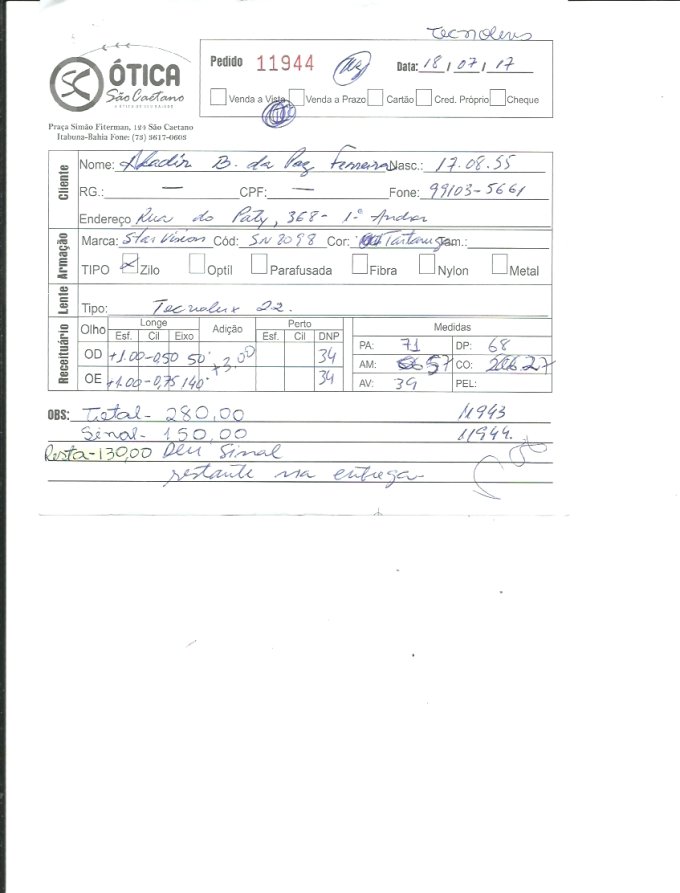 Tecnolens
ÓTICA
São Caetano
Pedido 11944 Data: 18 / 07 / 17
Venda a Vista Venda a Prazo Cartão Cred. Próprio Cheque
Praça Simão Fiterman, 124 São Caetano
Itabuna-Bahia Fone: (73) 3617-0603
Cliente
Nome: B. da Paz Ferreira Nasc.: 17.08.55
RG.: — CPF: — Fone: 99103-5661
Endereço Rua do Paty, 368 - 1º Andar
Armação
Marca: Star Vision Cód: SN2098 Cor: Tartaruga Tam.:
TIPO Zilo Optil Parafusada Fibra Nylon Metal
Lente
Tipo: Tecnolux 22.
Receituário
Olho Longe Adição Perto Medidas
Esf. Cil Eixo Esf. Cil DNP
OD +1.00 -0,50 50° +3,00 34
OE +1.00 -0,75 140° 34
PA: 71 DP: 68
AM: 57 CO: 27
AV: 39 PEL:
OBS: Total - 280,00 11943
Sinal - 150,00 11944.
Resta - 130,00 Deu Sinal
restante na entrega